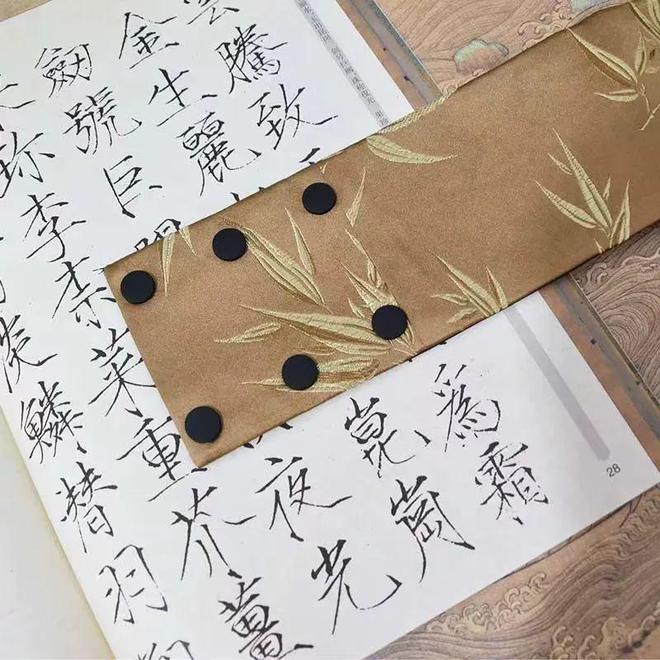 雲騰致
為霜
金生麗
崑崗
劍號巨
夜光
珍李柰菜重芥薑
淡鱗潛羽
28